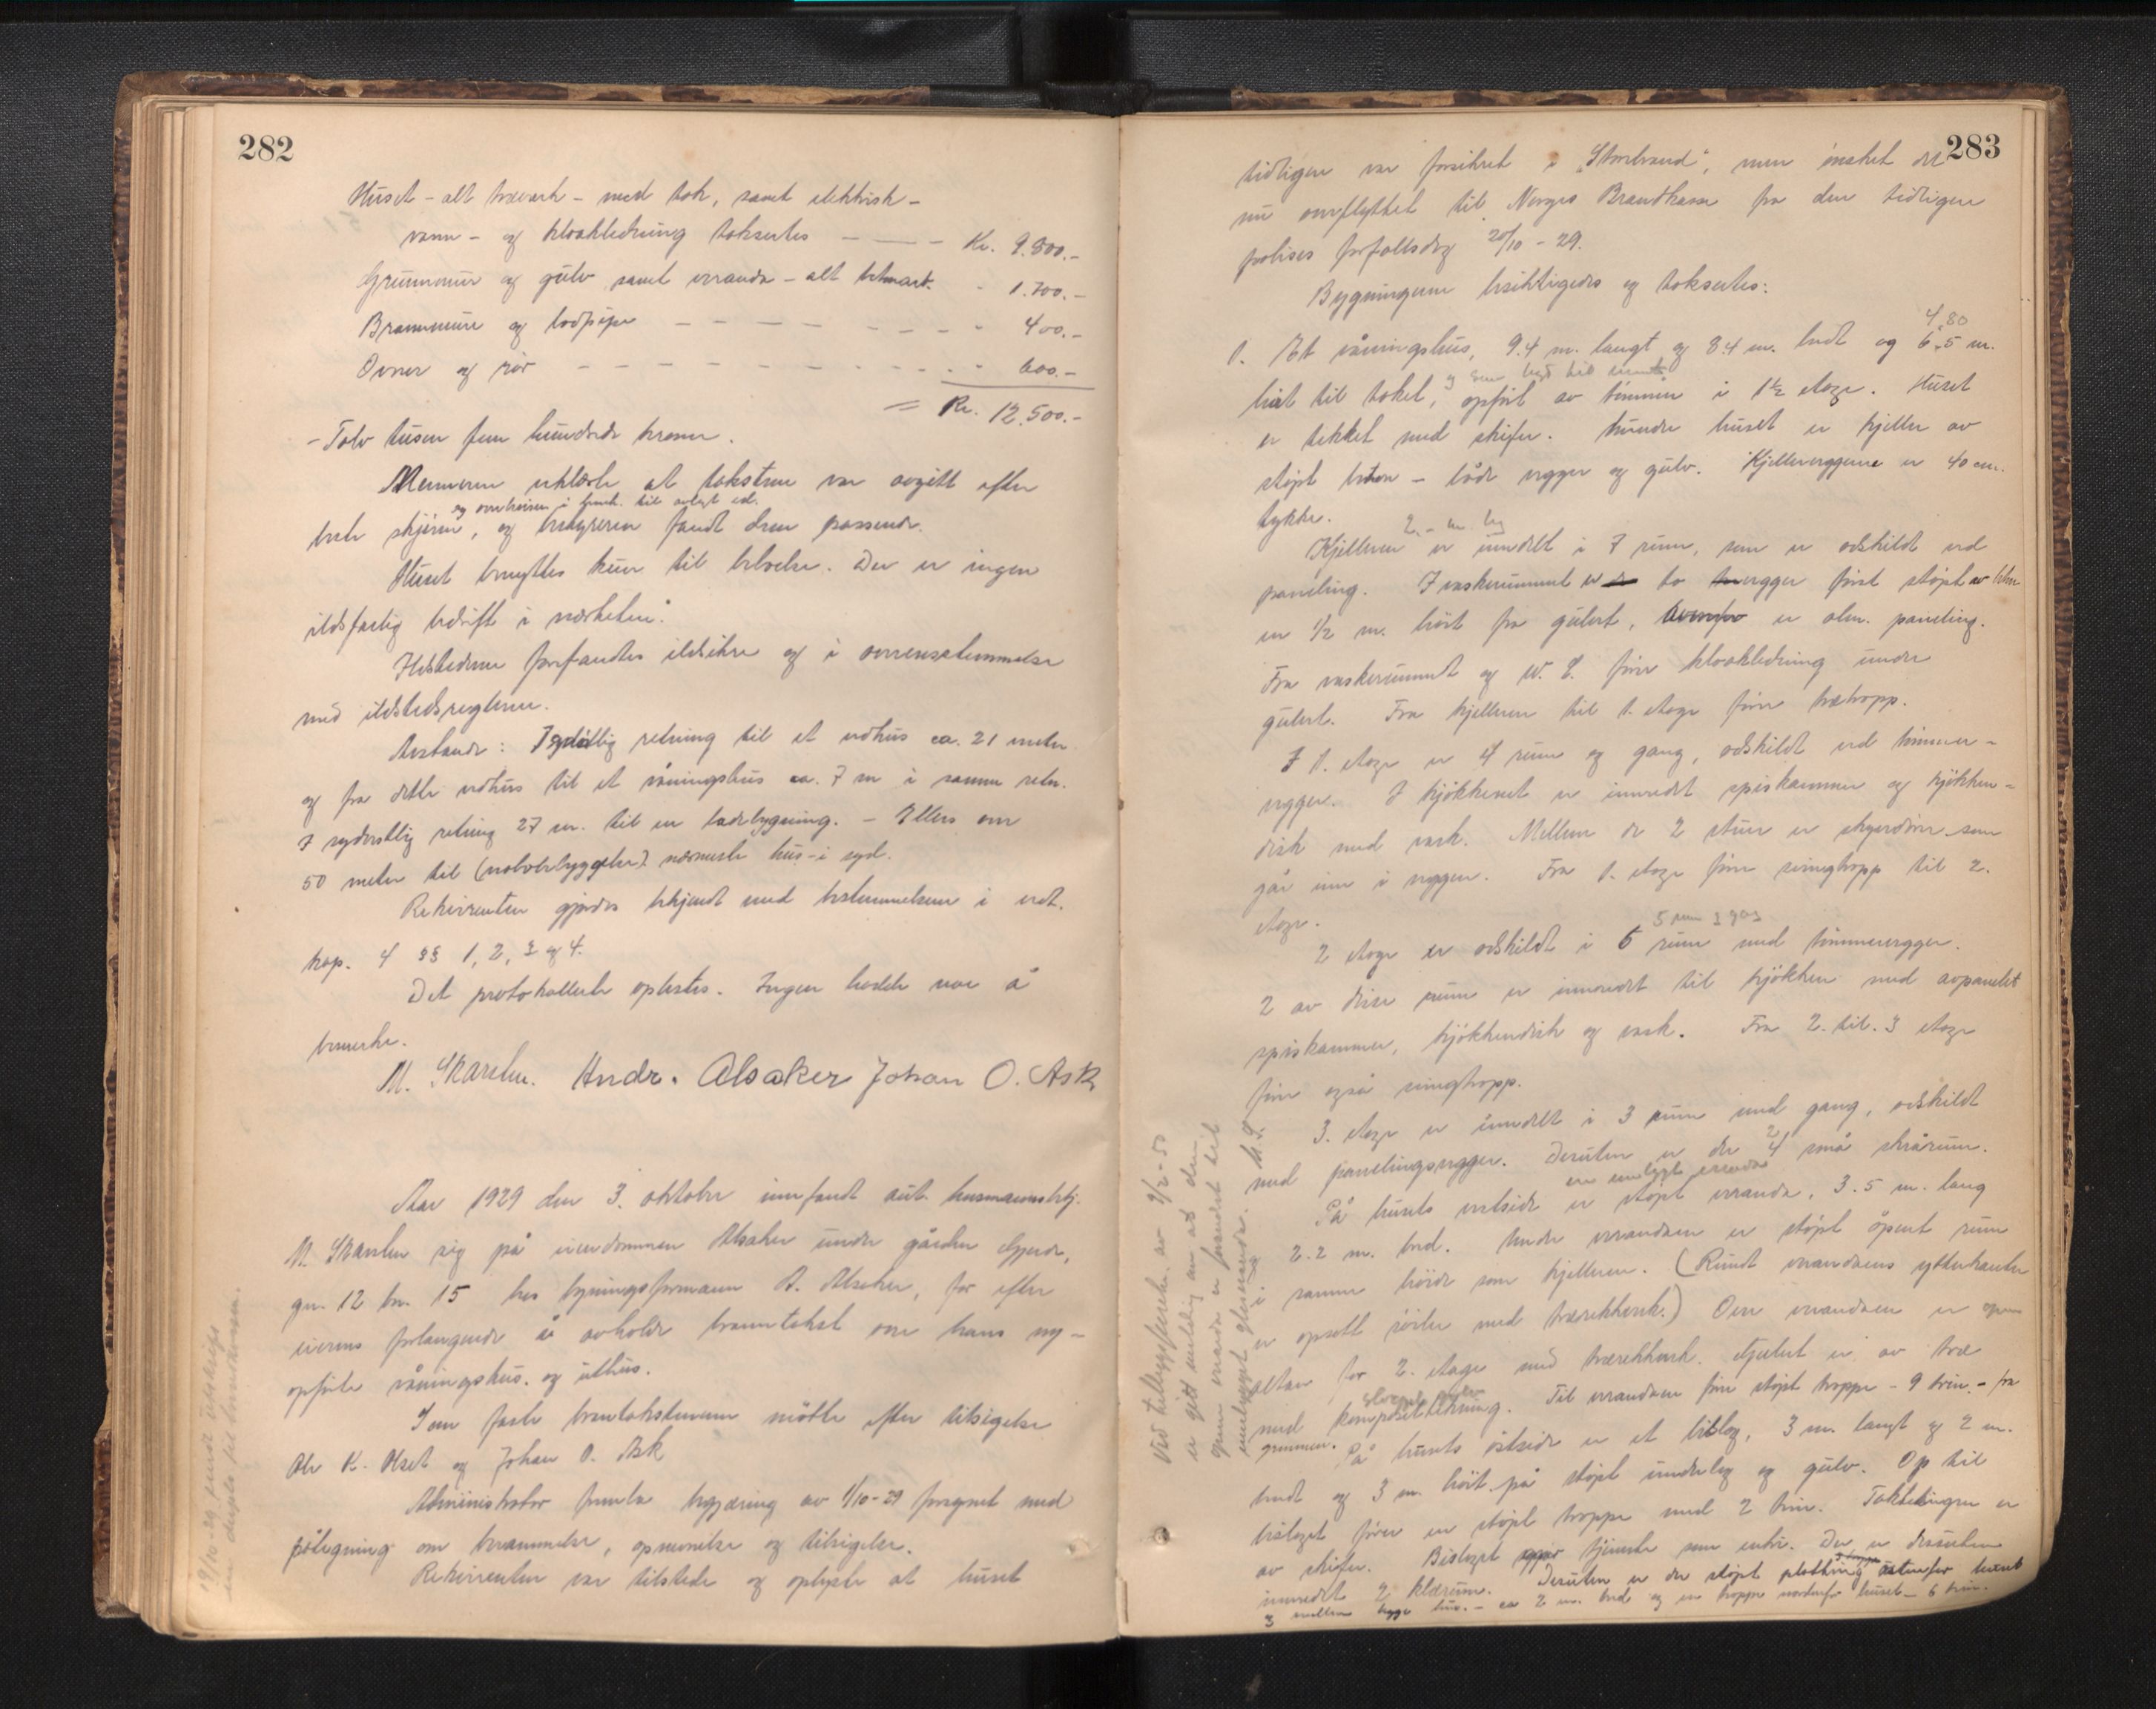 282
Huset - alt træverk - med tak, samt elektrisk -
vann - og kloakledning takseres — — Kr. 9.800.-
Grunnmur og gulv samt veranda - alt - 1.700.-
Brannmure og luftpipe - - - - - - 400.-
Ovner og rør - - - - - - 600.-
= Kr. 12.500.-
- Tolv tusen fem hundrede kroner.
Mennene erklærte at taksten var avgitt efter
og til avlagt ed.
beste skjønn, og bestyreren fandt den passende.
Huset benyttes kun til beboelse. Der er ingen
ildsfarlig bedrift i nærheten.
Ildstedene forfandtes ildsikre og i overensstemmelse
med ildstedsreglene.
Avstande: I retning til et uthus ca. 21 meter
og fra dette uthus til et våningshus ca. 7 m i samme retn.
I sydøstlig retning 27 m. til en ladebygning. - Ellers over
50 meter til (nabobebyggelse) nærmeste hus - i syd.
Rekvirenten gjordes bekjendt med bestemmelsene i vedt.
kap. 4 §§ 1, 2, 3 og 4.
Det protokollerte oplestes. Ingen hadde noe å
bemerke.
M. Skarsbu. Andr. Alsaker Johan O. Ask
Aar 1929 den 3. oktober innfandt aut. lensmannsbetj.
M. Skarsbu sig på eiendommen Alsaker under gården Gjerde,
gn. 12 bn. 15 hos bygningsformann A. Alsaker, for efter
eierens forlangende å avholde branntakst over hans ny-
opførte våningshus. og uthus.
Som faste branntakstmenn møtte efter tilsigelse
Ole K. Olset og Johan O. Ask
Administrator fremla begjæring av 1/10-29 forsynet med
påtegning om berammelse, opnevnelse og tilsigelse.
Rekvirenten var tilstede og oplyste at huset
19/10-29 sendt utskrift
in duplo til brandkassen.
283
tidligere var forsikret i "Storebrand", men ønsket det
nu overflyttet til Norges Brandkasse fra den tidligere
polises forfallsdag 20/10 - 29.
Bygningene besiktigedes og taksertes:
4.80
1. Et våningshus, 9.4 m. langt og 8.4 m. bredt og 6.5 m.
høit til taket, opført av tømmer i 1½ etage. Huset
er tekket med skifer. Under huset er kjeller av
støpt beton - både vegger og gulv. Kjelleveggene er 40 cm.
tykke.
2. - m. høg
Kjelleren er inndelt i 7 rum, som er adskildt ved
paneling. I vaskerummet er to vegger først støpt av beton
en ½ m. høit fra gulvet, ovenfor er alm. paneling.
Fra vaskerummet og W.C. fører kloakledning under
gulvet. Fra kjelleren til 1. etage fører trætrapp.
I 1. etage er 4 rum og gang, adskildt ved tømmer-
vegger. I kjøkkenet er innredet spiskammer og kjøkken-
disk med vask. Mellem de 2 stuer er skyvedøre som
går inn i veggen. Fra 1. etage fører svingtrapp til 2.
etage.
5 rum 1 gang
2 etage er adskildt i 6 rum med tømmervegger.
2 av disse rum er innredet til kjøkken med avpanelet
spiskammer, kjøkkendisk og vask. Fra 2. til 3 etage
fører også svingtrapp.
3. etage er inndelt i 3 rum med gang, adskildt
2
med panelingsvegger. Desuten er der 4 små skrårum.
en innbygt veranda
På husets vestside er støpt veranda, 3.5 m. lang
og 2.2 m. bred. Under verandaen er støpt åpent rum
i samme høide som kjelleren. (Rundt verandaens ytterkanter
er opsatt søiler med trærekkverk.) Over verandaen er åpen
altan for 2. etage med trærekkverk. Gulvet er av træ
med . Til verandaen fører støpt trappe - 9 trin. - fra
grunnen. På husets østside er et bislag, 3 m. langt og 2 m.
bredt og 3 m. høit på støpt underlag og gulv. Op til
bislaget fører en støpt trappe med 2 trin. Taktekkingen er
av skifer. Bislaget tjeneste som entre. Der er dessuten
innredt 2 klærum. Desuten er der støpt platting østenfor huset
og mellem begge hus. - ca 2 m. bred og en trappe nordenfor huset - 6 trin.
Ved tilleggsforretn. av 9/2-50
er gitt melding om at den
åpne veranda er forandret til
innebygget glassveranda. M.S.